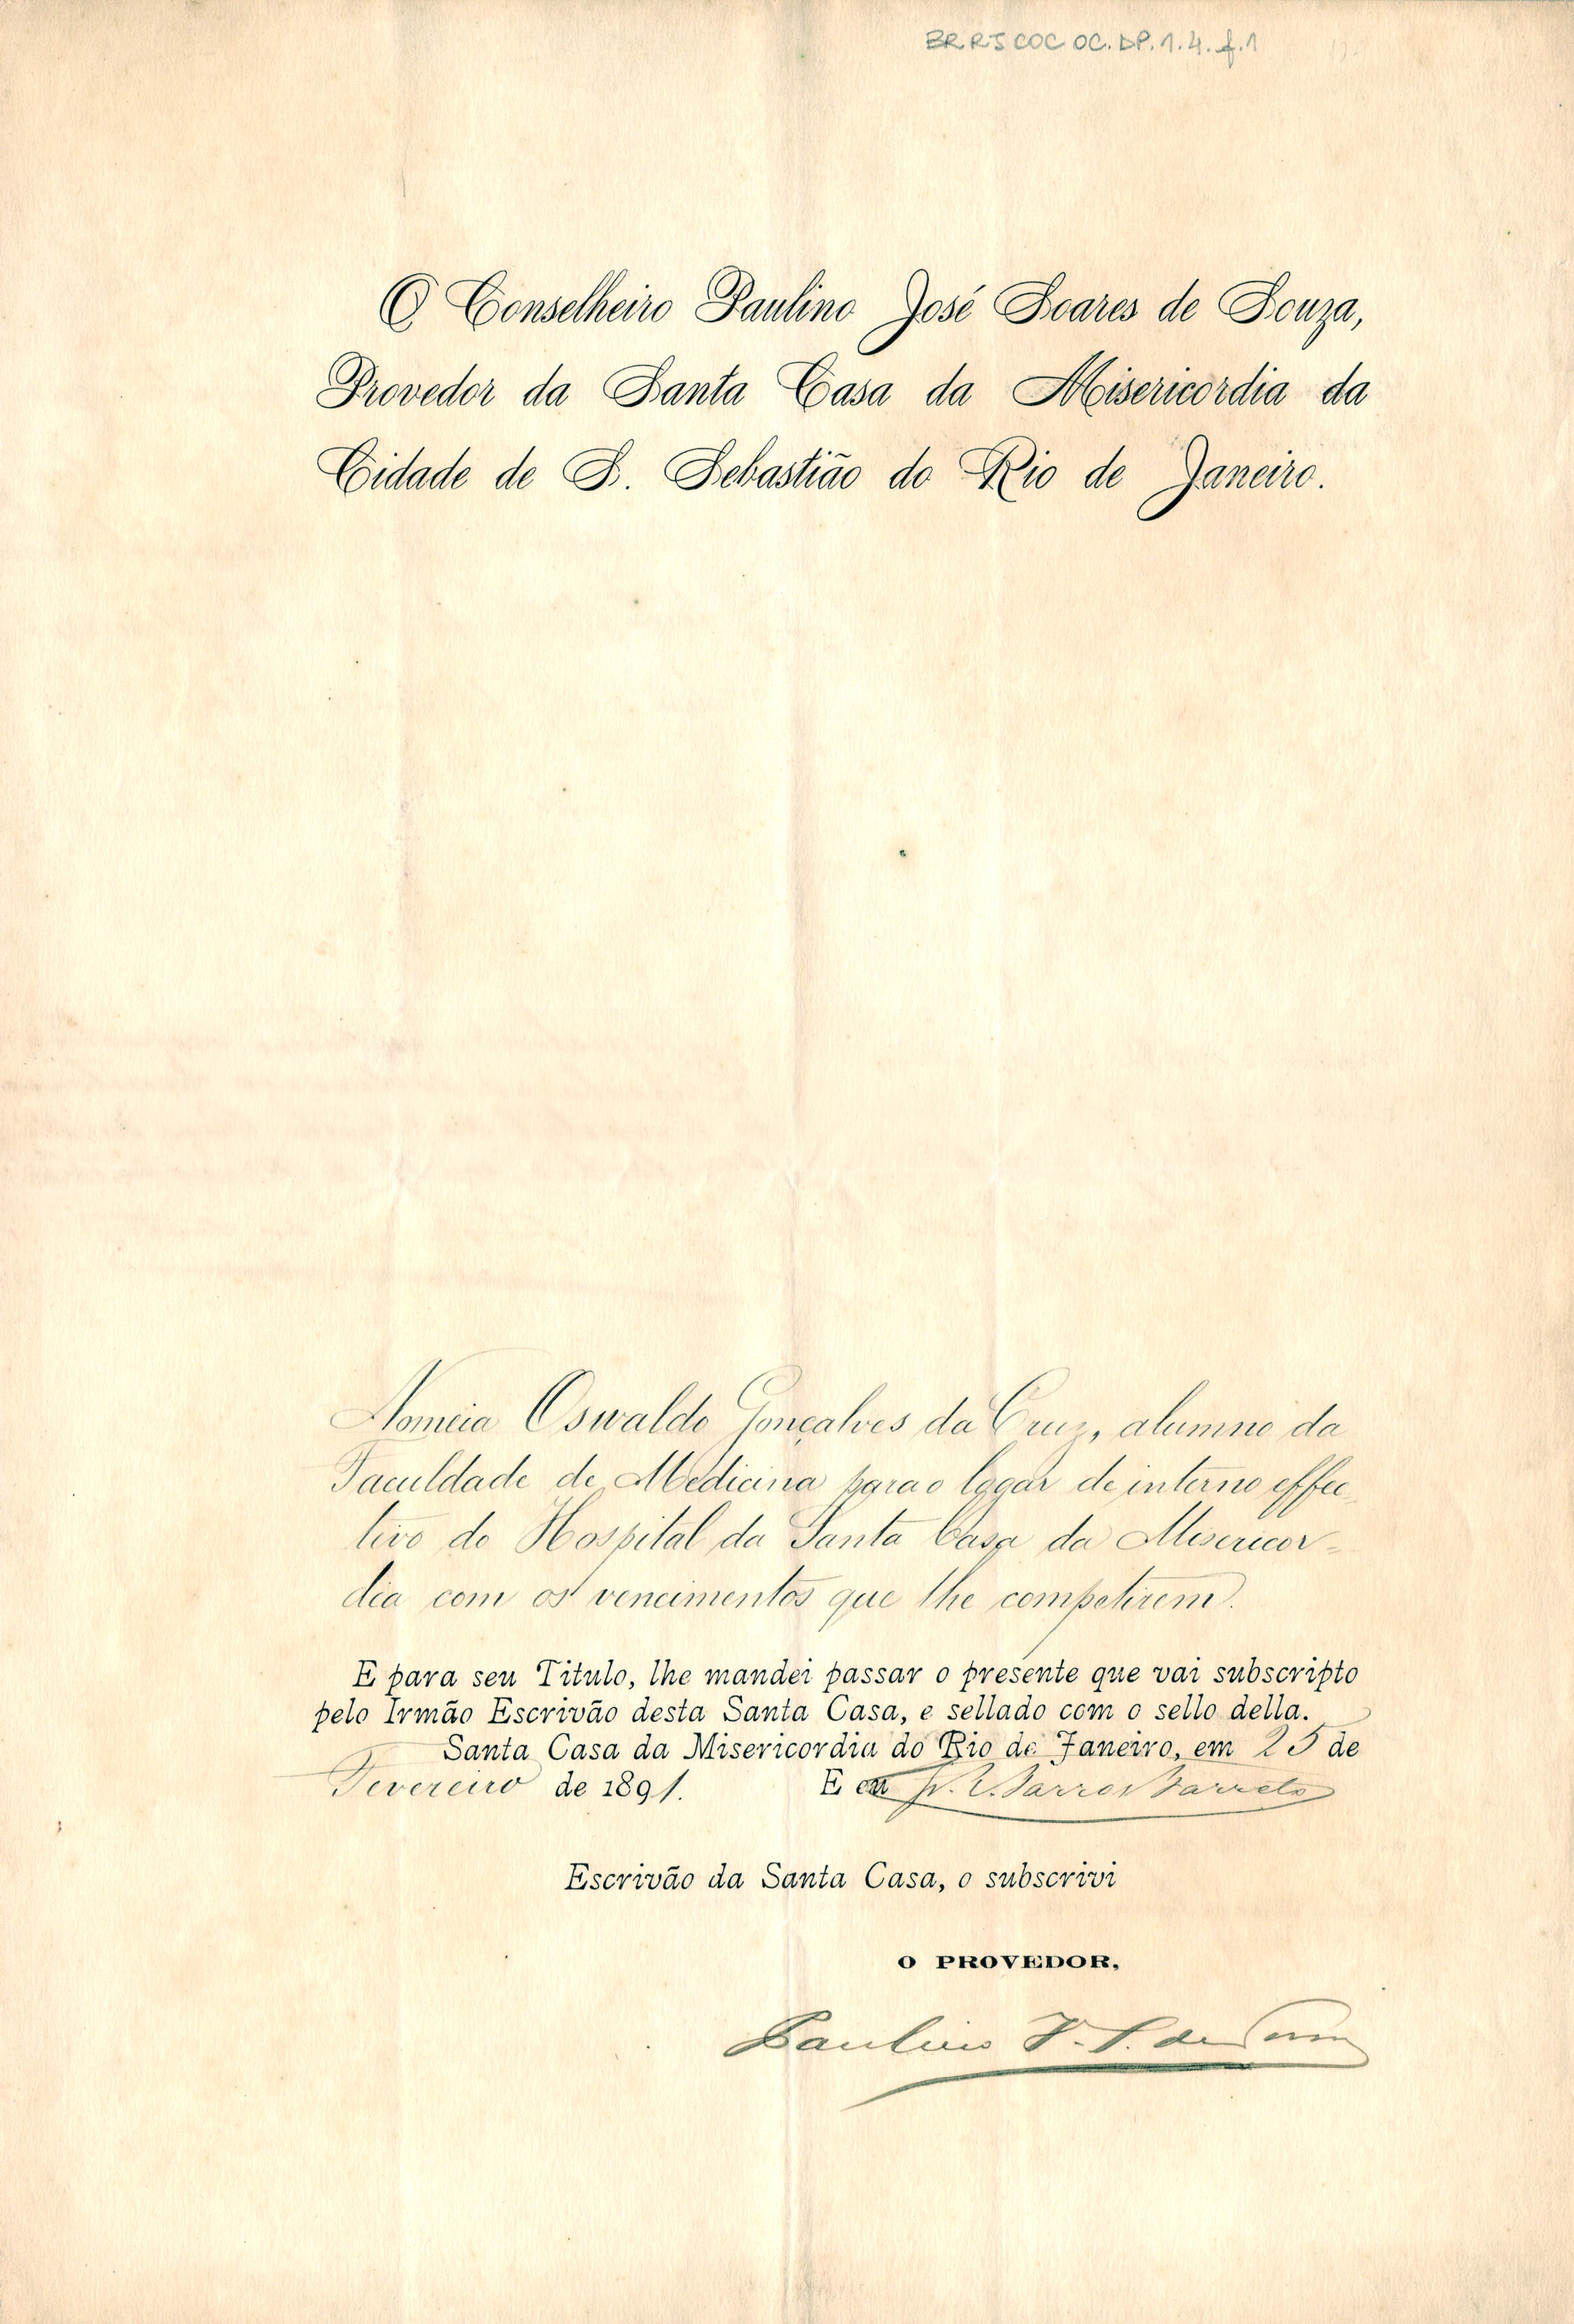 BR.RJ COC OC.DP.1.4.f.1
O Conselheiro Paulino José Soares de Souza,
Provedor da Santa Casa da Misericordia da
Cidade de S. Sebastião do Rio de Janeiro.
Nomeia Oswaldo Gonçalves da Cruz, alumno da
Faculdade de Medicina para o logar de interno effec-
tivo do Hospital da Santa Casa da Misericor-
dia com os vencimentos que lhe competirem.
E para seu Titulo, lhe mandei passar o presente que vai subscripto
pelo Irmão Escrivão desta Santa Casa, e sellado com o sello della.
Santa Casa da Misericordia do Rio de Janeiro, em 25 de
Fevereiro de 1891. E eu Barros Barreto
Escrivão da Santa Casa, o subscrivi
O PROVEDOR,
Paulino J. S. de Souza